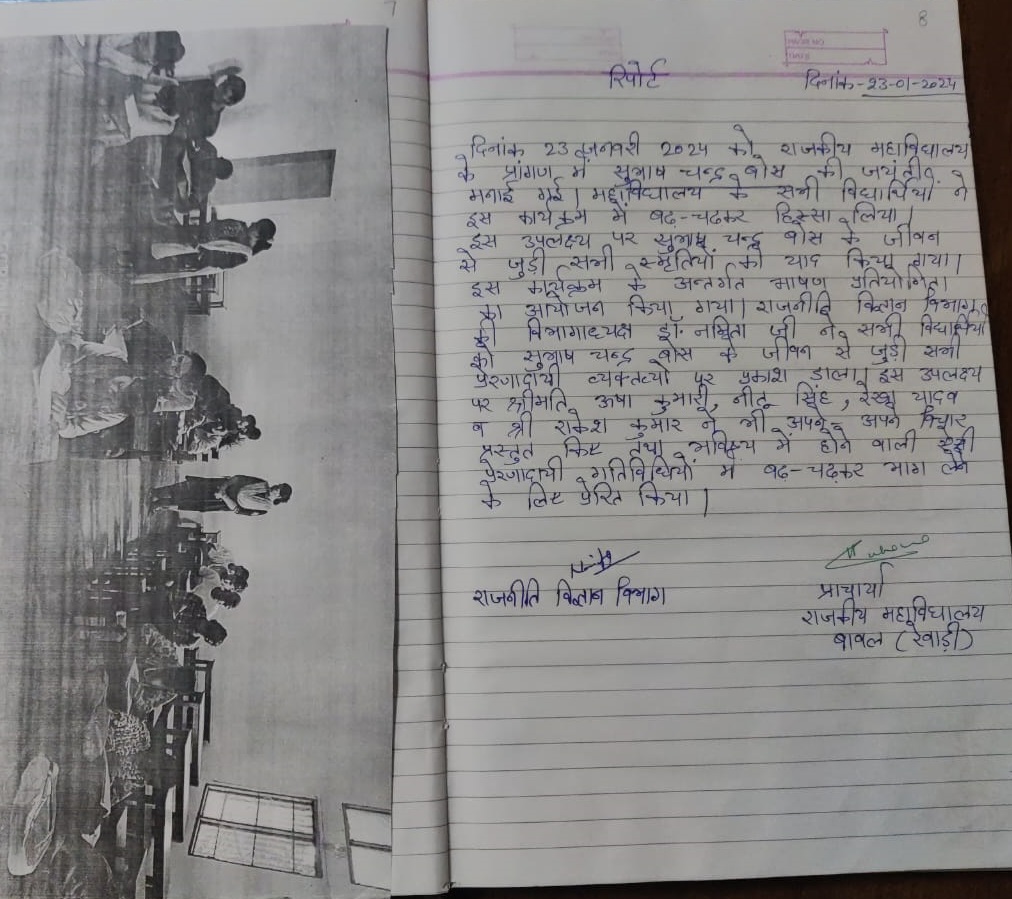 7
8
रिपोर्ट
दिनांक-23-01-2024
दिनांक 23 जनवरी 2024 को राजकीय महाविद्यालय
के प्रांगण में सुभाष चन्द्र बोस की जयंती
मनाई गई। महाविद्यालय के सभी विद्यार्थियों ने
इस कार्यक्रम में बढ़-चढ़कर हिस्सा लिया।
इस उपलक्ष्य पर सुभाष चन्द्र बोस के जीवन
से जुड़ी सभी स्मृतियों को याद किया गया।
इस कार्यक्रम के अन्तर्गत भाषण प्रतियोगिता
का आयोजन किया गया। राजनीति विज्ञान विभाग
की विभागाध्यक्ष डॉ. जी ने सभी विद्यार्थियों
को सुभाष चन्द्र बोस के जीवन से जुड़ी सभी
प्रेरणादायी व्यक्तव्यों पर प्रकाश डाला। इस उपलक्ष्य
पर श्रीमति ऊषा कुमारी, नीतू सिंह, रेखा यादव
व श्री राकेश कुमार ने भी अपने-अपने विचार
प्रस्तुत किए तथा भविष्य में होने वाली
प्रेरणादायी गतिविधियों में बढ़-चढ़कर भाग लेने
के लिए प्रेरित किया।
राजनीति विज्ञान विभाग
प्राचार्या
राजकीय महाविद्यालय
बावल (रेवाड़ी)